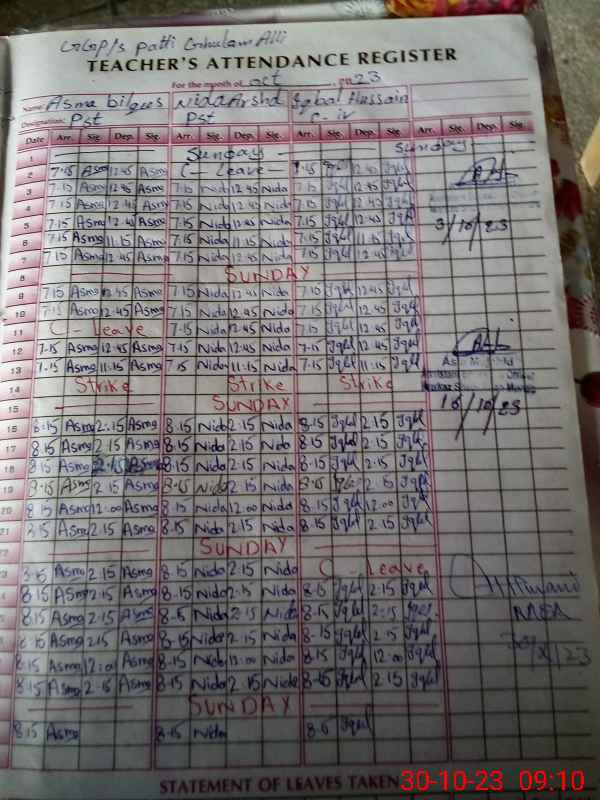 GGP/s Patti Ghulam Alli
TEACHER'S ATTENDANCE REGISTER
For the month of oct 2023
Name: Asma bilqees Nida Arshd Iqbal Hussain
Designation: Pst Pst C-iv
Date Arr. Sig. Dep. Sig. Arr. Sig. Dep. Sig. Arr. Sig. Dep. Sig. Arr. Sig. Dep. Sig.
1 Sunday Sunday
2 7.15 Asma 12.45 Asma C-Leave 7.15 Iqbl 12.45 Iqbl
3 7.15 Asma 12.45 Asma 7.15 Nida 12.45 Nida 7.15 Iqbl 12.45 Iqbl
4 7.15 Asma 12.45 Asma 7.15 Nida 12.45 Nida 7.15 Iqbl 12.45 Iqbl
5 7.15 Asma 12.45 Asma 7.15 Nida 12.45 Nida 7.15 Iqbl 12.45 Iqbl 3/10/23
6 7.15 Asma 11.15 Asma 7.15 Nida 11.15 Nida 7.15 Iqbl 11.15 Iqbl
7 7.15 Asma 12.45 Asma 7.15 Nida 12.45 Nida 7.15 Iqbl 12.45 Iqbl
8 SUNDAY
9 7.15 Asma 12.45 Asma 7.15 Nida 12.45 Nida 7.15 Iqbl 12.45 Iqbl
10 7.15 Asma 12.45 Asma 7.15 Nida 12.45 Nida 7.15 Iqbl 12.45 Iqbl
11 C-Leave 7.15 Nida 12.45 Nida 7.15 Iqbl 12.45 Iqbl
12 7.15 Asma 12.45 Asma 7.15 Nida 12.45 Nida 7.15 Iqbl 12.45 Iqbl
13 7.15 Asma 11.15 Asma 7.15 Nida 11.15 Nida 7.15 Iqbl 11.15 Iqbl
14 Strike Strike Strike
15 SUNDAY 16/10/23
16 8.15 Asma 2.15 Asma 8.15 Nida 2.15 Nida 8.15 Iqbl 2.15 Iqbl
17 8.15 Asma 2.15 Asma 8.15 Nida 2.15 Nida 8.15 Iqbl 2.15 Iqbl
18 8.15 Asma 2.15 Asma 8.15 Nida 2.15 Nida 8.15 Iqbl 2.15 Iqbl
19 8.15 Asma 2.15 Asma 8.15 Nida 2.15 Nida 8.15 Iqbl 2.15 Iqbl
20 8.15 Asma 12.00 Asma 8.15 Nida 12.00 Nida 8.15 Iqbl 12.00 Iqbl
21 8.15 Asma 2.15 Asma 8.15 Nida 2.15 Nida 8.15 Iqbl 2.15 Iqbl
SUNDAY
8.15 Asma 2.15 Asma 8.15 Nida 2.15 Nida C-Leave
8.15 Asma 2.15 Asma 8.15 Nida 2.15 Nida 8.15 Iqbl 2.15 Iqbl
8.15 Asma 2.15 Asma 8.15 Nida 2.15 Nida 8.15 Iqbl 2.15 Iqbl
8.15 Asma 2.15 Asma 8.15 Nida 2.15 Nida 8.15 Iqbl 2.15 Iqbl
8.15 Asma 12.00 Asma 8.15 Nida 12.00 Nida 8.15 Iqbl 12.00 Iqbl
8.15 Asma 2.15 Asma 8.15 Nida 2.15 Nida 8.15 Iqbl 2.15 Iqbl
SUNDAY
8.15 Asma 8.15 Nida 8.15 Iqbl
STATEMENT OF LEAVES TAKEN
30-10-23 09:10